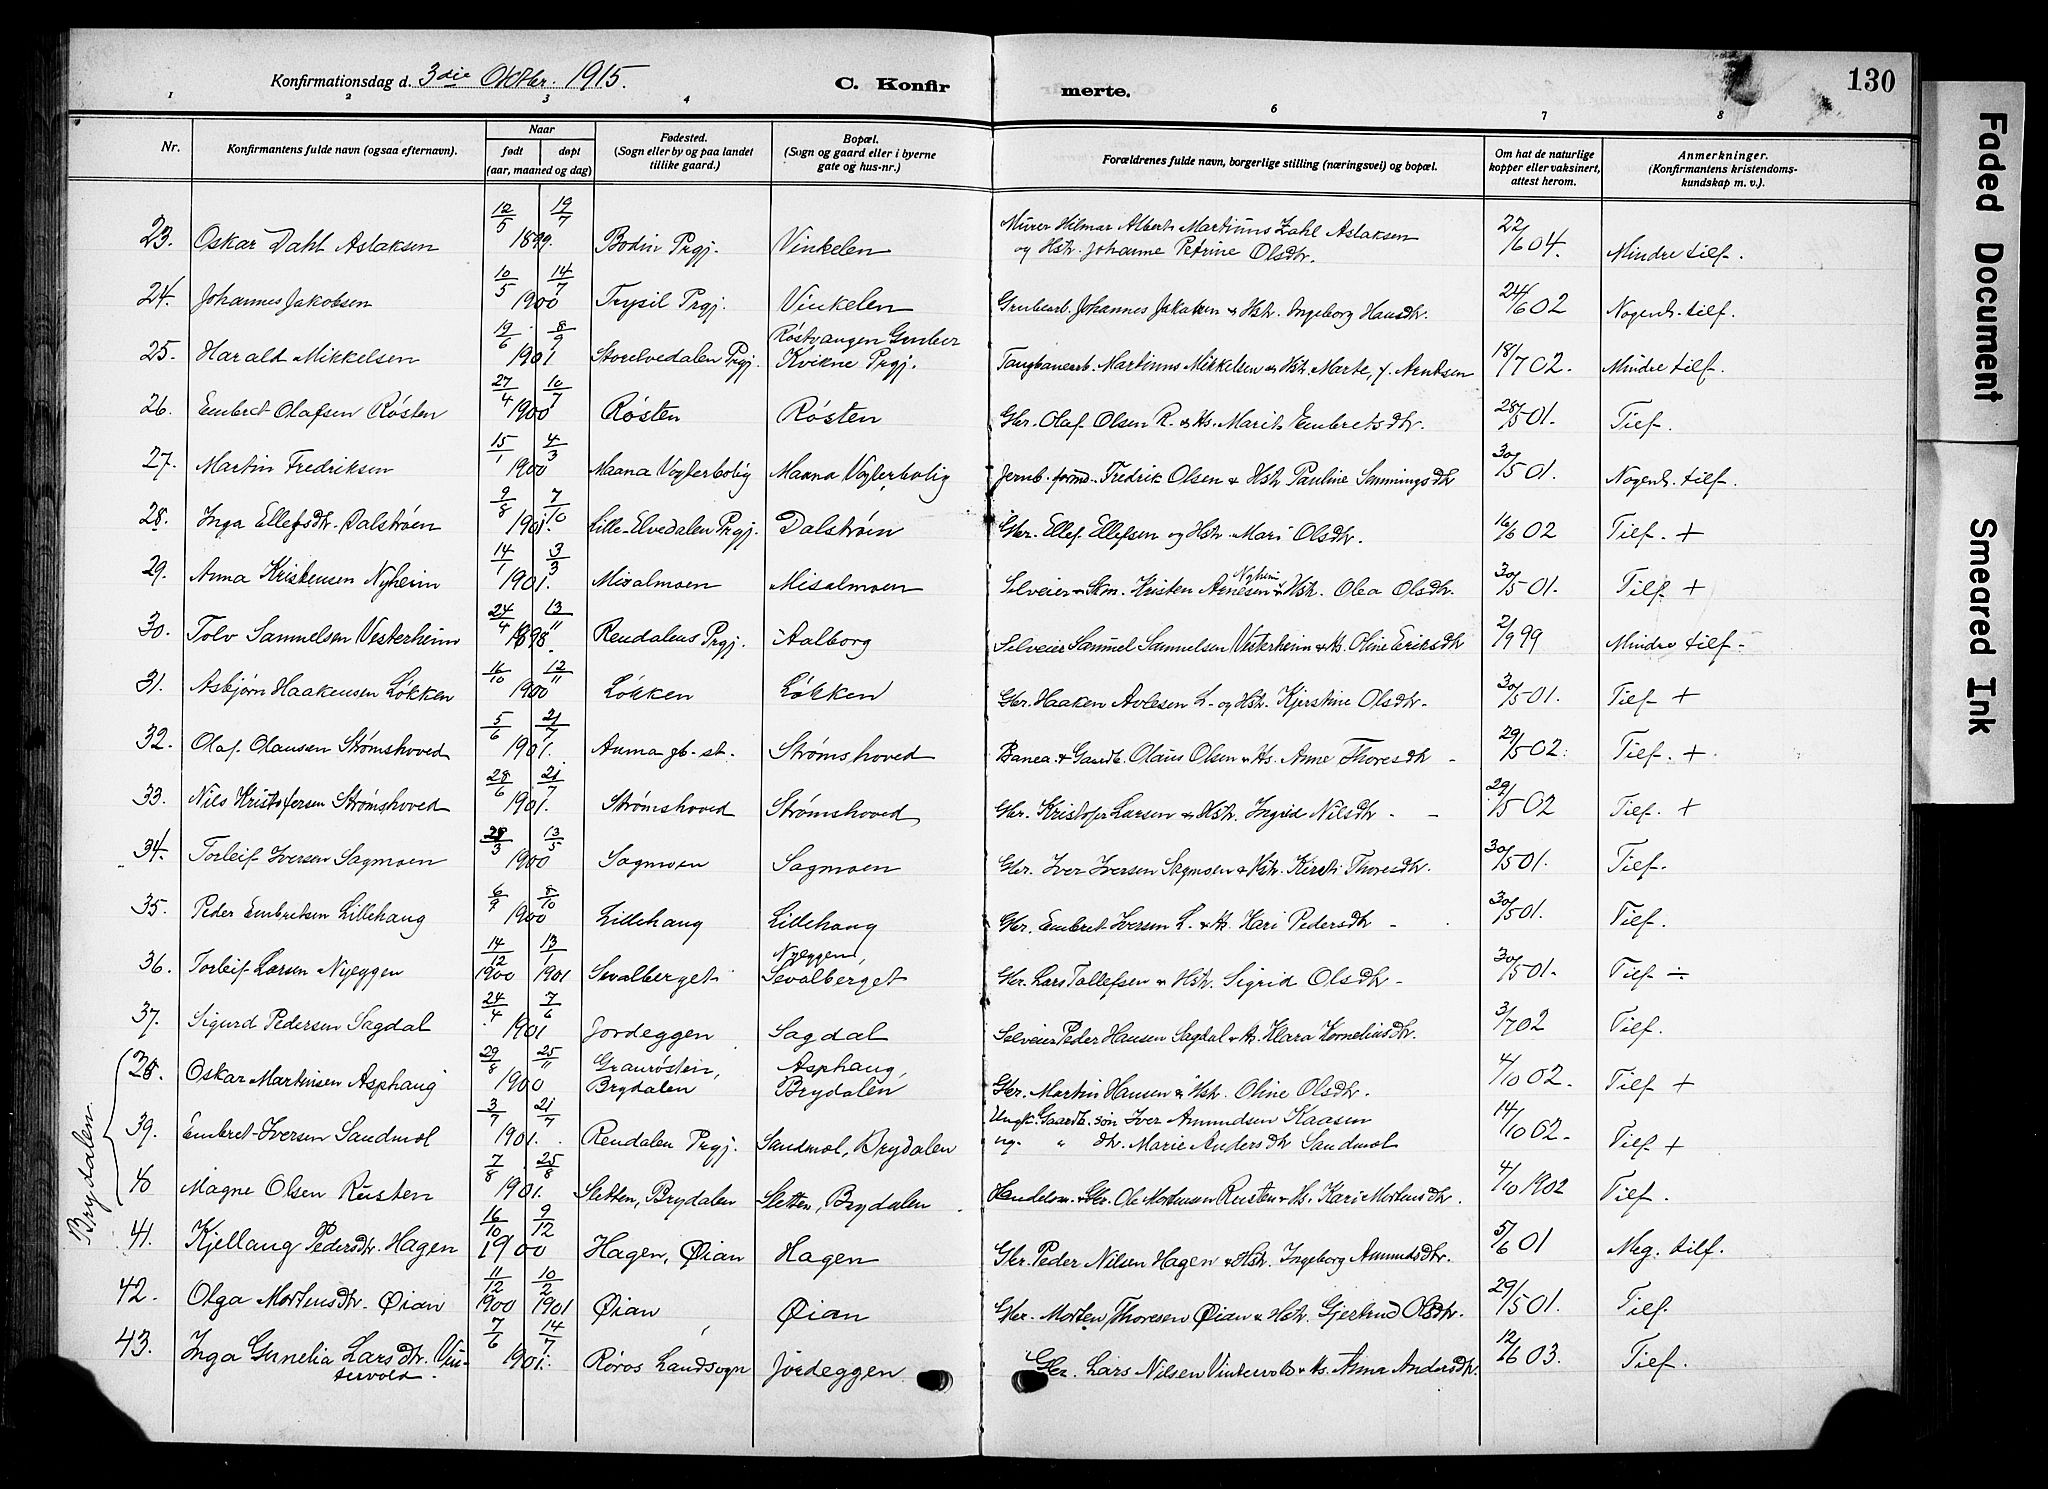 Konfirmationsdag d. 3die Oktbr. 1915. C. Konfirmerte. 130
1 2 3 4 5 6 7 8
Nr. Konfirmantens fulde navn (ogsaa efternavn). Naar født døpt (aar, maaned og dag) Fødested. (Sogn eller by og paa landet tillike gaard.) Bopæl. (Sogn og gaard eller i byerne gate og hus-nr.) Forældrenes fulde navn, borgerlige stilling (næringsvei) og bopæl. Om hat de naturlige kopper eller vaksinert, attest herom. Anmerkninger. (Konfirmantens kristendomskundskap m. v.).
23. Oskar Dahl Aslaksen 12/5 19/7 1899. Bodin Prgj. Vinkelen Murer Hilmar Albert Martinus Zahl Aslaksen og Hstr. Johanne Petrine Olsdtr. 22/6 04. Mindre tilf.
24. Johannes Jakobsen 10/5 14/7 1900 Trysil Prgj. Vinkelen Grubearb. Johannes Jakobsen & Hstr. Ingeborg Hansdtr. 24/6 02 Nogenl. tilf.
25. Harald Mikkelsen 19/6 8/9 1901 Storelvedalen Prgj. Røstvangen Gruber Kvikne Prgj. Taugbanearb. Martinus Mikkelsen & Hstr. Marte, f. Arntsen 18/7 02. Mindre tilf.
26. Embret Olafsen Røsten 27/4 10/7 1900 Røsten Røsten Gbr. Olaf Olsen R. & Hs. Marit Embretsdtr. 28/5 01. Tilf.
27. Martin Fredriksen 15/1 4/3 1900 Maana Vogterbolig Maana Vogterbolig Jernb. formd. Fredrik Olsen & Hstr Pauline Simmingsdtr 30/5 01. Nogenl. tilf.
28. Inga Ellefsdtr. Dalstrøen 9/8 7/10 1901. Lille-Elvedalen Prgj. Dalstrøen Gbr. Ellef Ellefsen og Hstr. Mari Olsdtr. 16/6 02 Tilf. +
29. Anna Kristensen Nyheim 14/1 3/3 1901. Misalmoen Misalmoen Selveier & Skm. Kristen Arnesen Nyheim & Hstr. Olea Olsdtr. 30/5 01. Tilf. +
30. Tolv Samuelsen Vesterheim 24/4 13/11 1898. Rendalens Prgj. Aalborg Selveier Samuel Samuelsen Vesterheim & Hs. Oline Eriksdtr 2/9 99 Mindre tilf.
31. Asbjørn Haakensen Løkken 16/10 12/11 1900 Løkken Løkken Gbr. Haaken Avlesen L. og Hstr. Kjerstine Olsdtr. 30/5 01. Tilf +
32. Olaf Olausen Strømshoved 5/6 21/7 1901. Auma jb. st. Strømshoved Banea. & Gaardb. Olaus Olsen & Hs. Anne Thoresdtr 29/5 02. Tilf. +
33. Nils Kristofersen Strømshoved 28/6 21/7 1901. Strømshoved Strømshoved Gbr. Kristofer Larsen & Hstr. Ingrid Nilsdtr. 29/5 02 Tilf. +
34. Torleif Iversen Sagmoen 28/3 13/5 1900 Sagmoen Sagmoen Gbr. Iver Iversen Sagmoen & Hstr. Kirsti Thoresdtr. 30/5 01. Tilf.
35. Peder Embretsen Lillehaug 6/9 8/10 1900 Lillehaug Lillehaug Gbr. Embret Iversen L. & Hs. Kari Pedersdtr 30/5 01. Tilf.
36. Torleif Larsen Nyeggen 14/12 1900 13/1 1901 Sevalberget Nyeggen, Sevalberget Gbr. Lars Tollefsen & Hstr. Sigrid Olsdtr 30/5 01. Tilf ÷
37. Sigurd Pedersen Sagdal 24/4 7/6 1901 Jordeggen Sagdal Selveier Peder Hansen Sagdal & Hs. Klara Kornelius dtr. 3/7 02 Tilf.
Brydalen.
38. Oskar Martinsen Asphaug 29/8 25/11 1900 Graurøsten, Brydalen Asphaug, Brydalen Gbr. Martin Hansen & Hstr. Oline Olsdtr. 4/10 02. Tilf +
39. Embret Iversen Sandmol 3/7 21/7 1901. Rendalen Prgj. Sandmol, Brydalen Ungk. Gaardb. søn Iver Amundsen Kaasen og " dtr. Marie Anders dtr Sandmol 14/10 02. Tilf +
40 Magne Olsen Rusten 7/8 25/8 1901. Sletten, Brydalen Sletten, Brydalen Handelsm. & Gbr. Ole Mortensen Rusten & Hs. Kari Mortensdtr. 4/10 1902 Tilf.
41. Kjellaug Pedersdtr. Hagen 16/10 9/12 1900 Hagen, Øian Hagen Gbr. Peder Nilsen Hagen & Hstr. Ingeborg Amundsdtr. 5/6 01 Meg. tilf.
42. Olga Mortensdtr. Øian 11/12 1900 10/2 1901 Øian Øian Gbr. Morten Thoresen Øian & Hstr. Gjertrud Olsdtr. 29/5 01. Tilf
43. Inga Gunelia Larsdtr. Vintervold. 7/6 14/7 1901. Røros Landsogn Jordeggen Gbr. Lars Nilsen Vintervold & Hs. Anna Andersdtr. 12/6 03. Tilf.
Faded Document
Smeared Ink